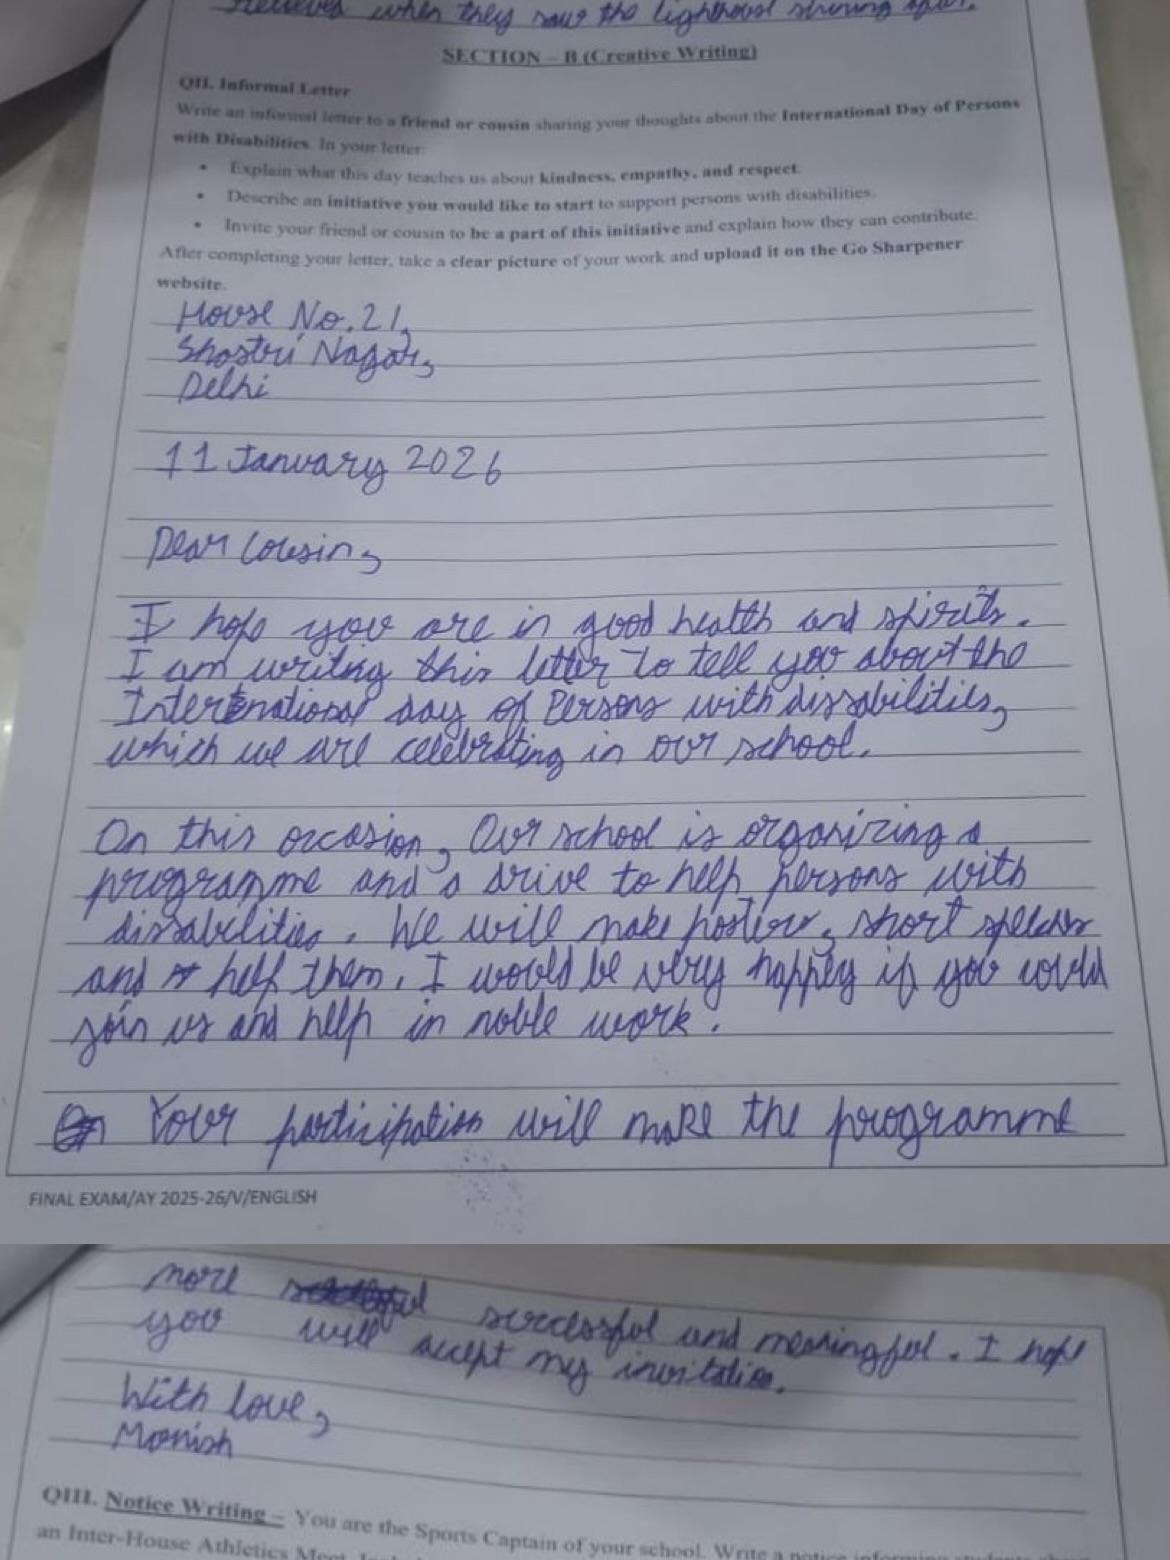 relieved when they saw the lighthouse shining
SECTION – B (Creative Writing)
QII. Informal Letter
Write an informal letter to a friend or cousin sharing your thoughts about the International Day of Persons
with Disabilities. In your letter:
• Explain what this day teaches us about kindness, empathy, and respect.
• Describe an initiative you would like to start to support persons with disabilities.
• Invite your friend or cousin to be a part of this initiative and explain how they can contribute.
After completing your letter, take a clear picture of your work and upload it on the Go Sharpener
website.
House No. 21,
Shastri Nagar,
Delhi
11 January 2026
Dear Cousin,
I hope you are in good health and spirits.
I am writing this letter to tell you about the
International day of Persons with dissabilities,
which we are celebrating in our school.
On this occasion, Our school is organizing a
programme and a drive to help persons with
dissabilities. We will make posters, short speeches
and help them. I would be very happpy if you could
join us and help in noble work.
Your participation will make the programme
FINAL EXAM/AY 2025-26/V/ENGLISH
more successful and meaningful. I hope
you will accept my invitation.
With love,
Manish
QIII. Notice Writing – You are the Sports Captain of your school. Write a notice informing
an Inter-House Athletics Meet.